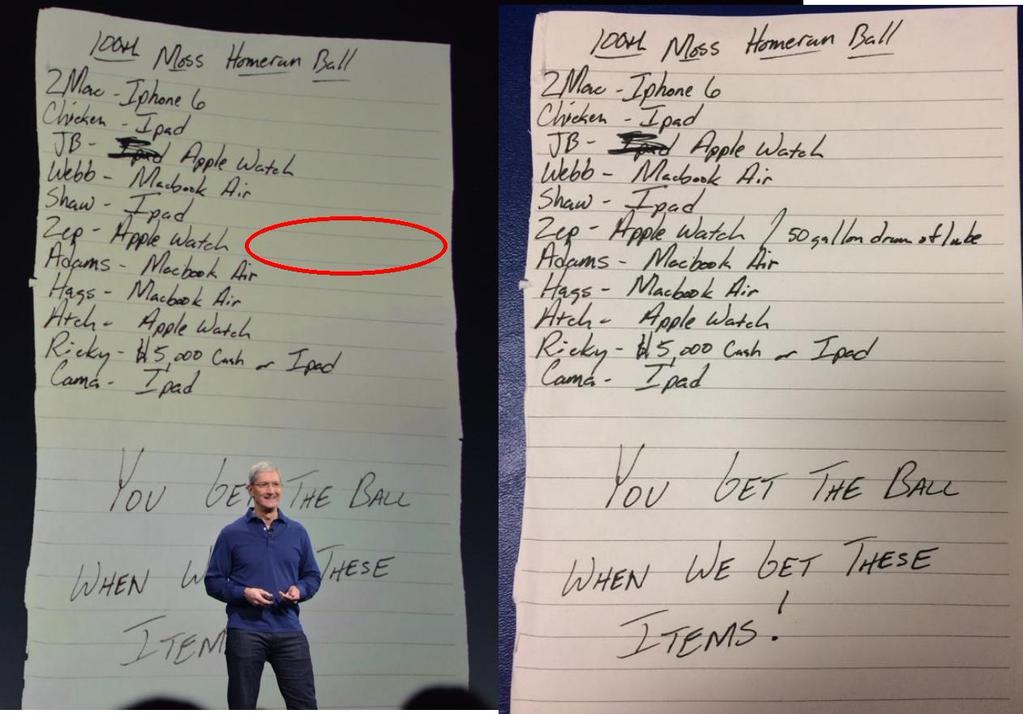 100th Moss Homerun Ball
2Mac - Iphone 6
Chicken - Ipad
JB - Apple Watch
Webb - Macbook Air
Shaw - Ipad
Zep - Apple Watch
Adams - Macbook Air
Hags - Macbook Air
Atch - Apple Watch
Ricky - $5,000 Cash or Ipad
Cama - Ipad
YOU GET THE BALL
WHEN W THESE
ITEM
100th Moss Homerun Ball
2Mac - Iphone 6
Chicken - Ipad
JB - Apple Watch
Webb - Macbook Air
Shaw - Ipad
Zep - Apple Watch / 50 gallon drum of lube
Adams - Macbook Air
Hags - Macbook Air
Atch - Apple Watch
Ricky - $5,000 Cash or Ipad
Cama - Ipad
YOU GET THE BALL
WHEN WE GET THESE
ITEMS!